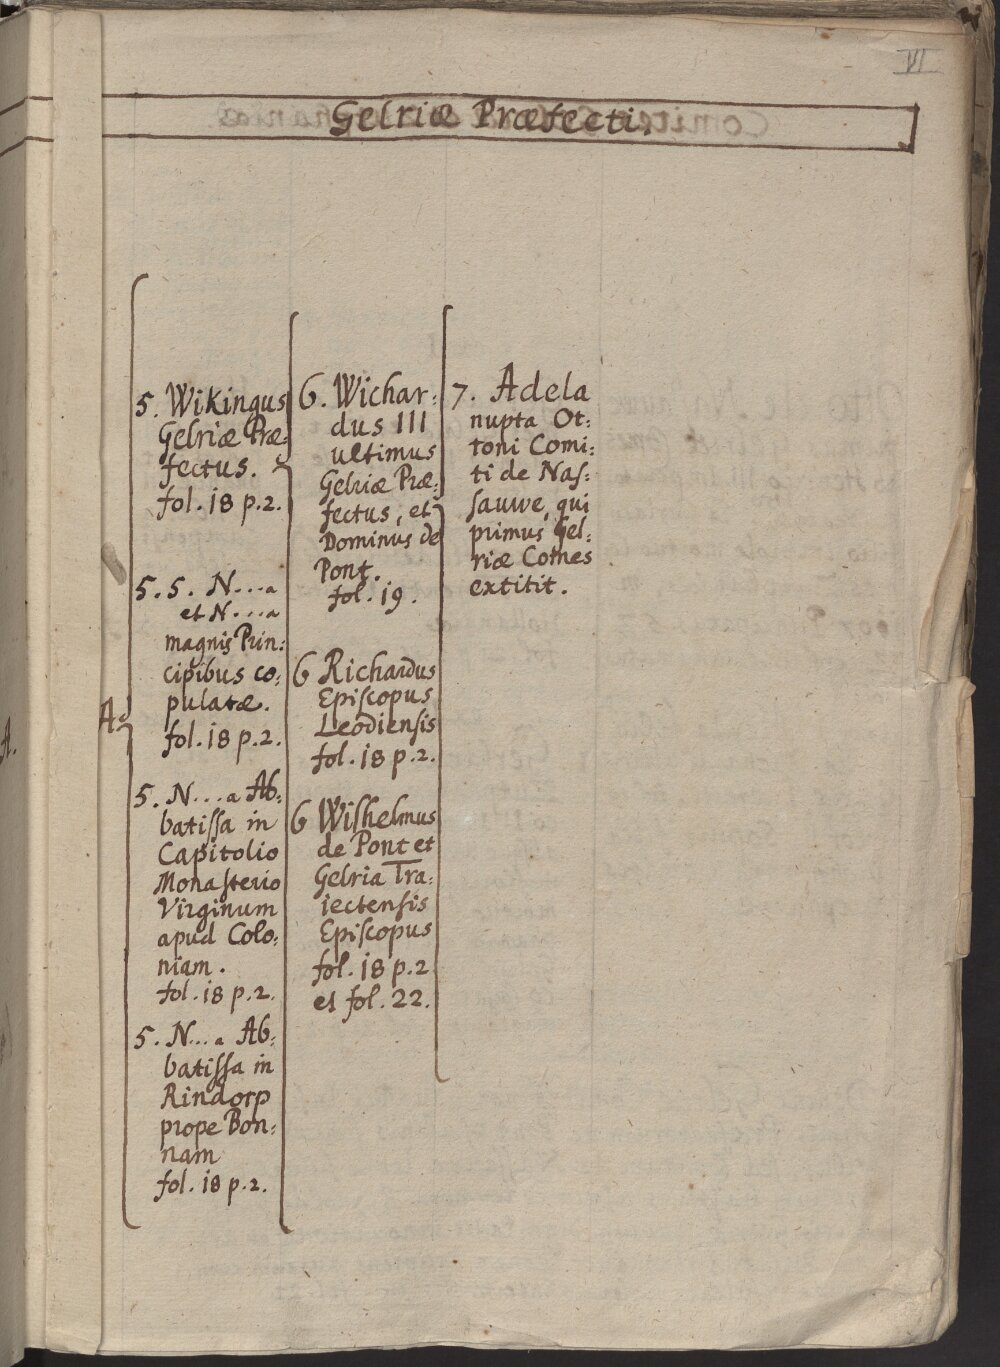 VI
Gelriæ Præfecti.
5. Wikingus
Gelriæ Præ:
fectus.
fol. 18 p.2.
5. 5. N...a
et N...a
magnis Prin:
cipibus co:
pulatæ.
fol. 18 p.2.
A.
5. N...a Ab:
batiſſa in
Capitolio
Monaſterio
Virginum
apud Colo:
niam.
fol. 18 p.2.
5. N...a Ab:
batiſſa in
Rindorp
prope Bon:
nam
fol. 18 p.2.
6. Wichar:
dus III
ultimus
Gelriæ Præ:
fectus, et
Dominus de
Pont.
fol. 19.
6 Richardus
Epiſcopus
Leodienſis
fol. 18 p.2.
6 Wilhelmus
de Pont et
Gelria Tra:
iectenſis
Epiſcopus
fol. 18 p.2
et fol. 22.
7. Adela
nupta Ot:
toni Comi:
ti de Naſ:
ſauwe, qui
primus Gel:
riæ Comes
extitit.